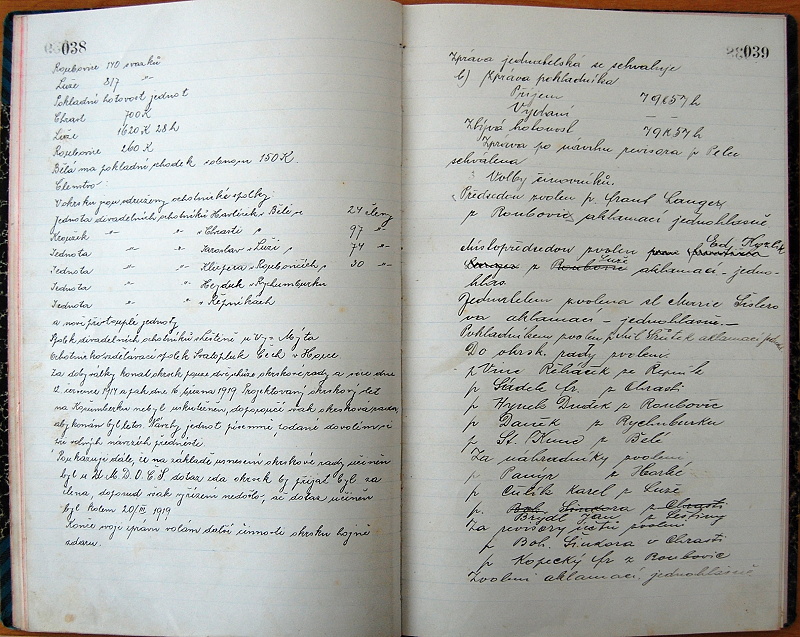 038
Rosubovic 140 svazků
Luže 317 "
Pokladní hotovost jednot
Chrast 700 K
Luže 1620 K 28 h
Rosubovic 260 K
Bělá má pokladní schodek obnosem 150 K.
Členstvo
V okrsku jsou sdruženy ochotnické spolky:
Jednota divadelních ochotníků Havlíček v Bělé 24 členy
Kroužek " " v Chrasti 97 "
Jednota " " Jaroslav v Luži 74 "
Jednota " " Klicpera v Rosubovicích 30 "
Jednota " " Hejduk v Rychmburku
Jednota " " v Řepníkách
a nově přistouplé jednoty
Spolek divadelních ochotníků ve Vys. Mýta
Ochotnicko vzdělávací spolek Svatopluk Čech v
Za doby války konal okrsek pouze dvě schůze okrskové rady a sice dne
12. července 1914 a pak dne 16. března 1919. Projektovaný okrskový
na Rychmburku nebyl uskutečněn, doporučuje však okrsková rada,
aby konán byl letos. Návrhy jednot písemně podané dovolím si
při volných návrzích přednésti.
Poukazuji dále, že na základě usnesení okrskové rady učiněn
byl u Ú. M. D. O. Č. S. dotaz zda okrsek by přijat byl za
člena, doposud však vyřízení nedošlo, ač dotaz učiněn
byl kolem 20/III 1919
Konče svoji zprávu volám další činnosti okrsku hojně
zdaru.
039
Zpráva jednatelská se schvaluje
b) Zpráva pokladníka
Příjem 79 K 57 h
Vydání — —
Zbývá hotovost 79 K 57 h
Zpráva po návrhu revisora p.
schválena
Volby činovníků.
Předsedou zvolen p. Frant. Langer
z Rosubovic aklamací jednohlasně
Místopředsedou zvolen Ed.
z Luže aklamací - jedno-
hlas.
Jednatelem zvolena sl. Marie
va aklamací - jednohlasně. -
Pokladníkem zvolen p. aklamací
Do okrsk. rady zvoleni
p. Vinc. Řeháček ze Řepník
p. Sádek fr. z Chrasti
p. Hynek Dušek z Rosubovic
p. Daněk z Rychmburku
p. St. z Bělé
Za náhradníky zvoleni
p. z
p. Culík Karel z Luže
p. z
Za revisory účtů zvoleni
p. Boh. Šindora v Chrasti
p. Kopecký fr. z Rosubovic
Zvoleni aklamací, jednohlasně